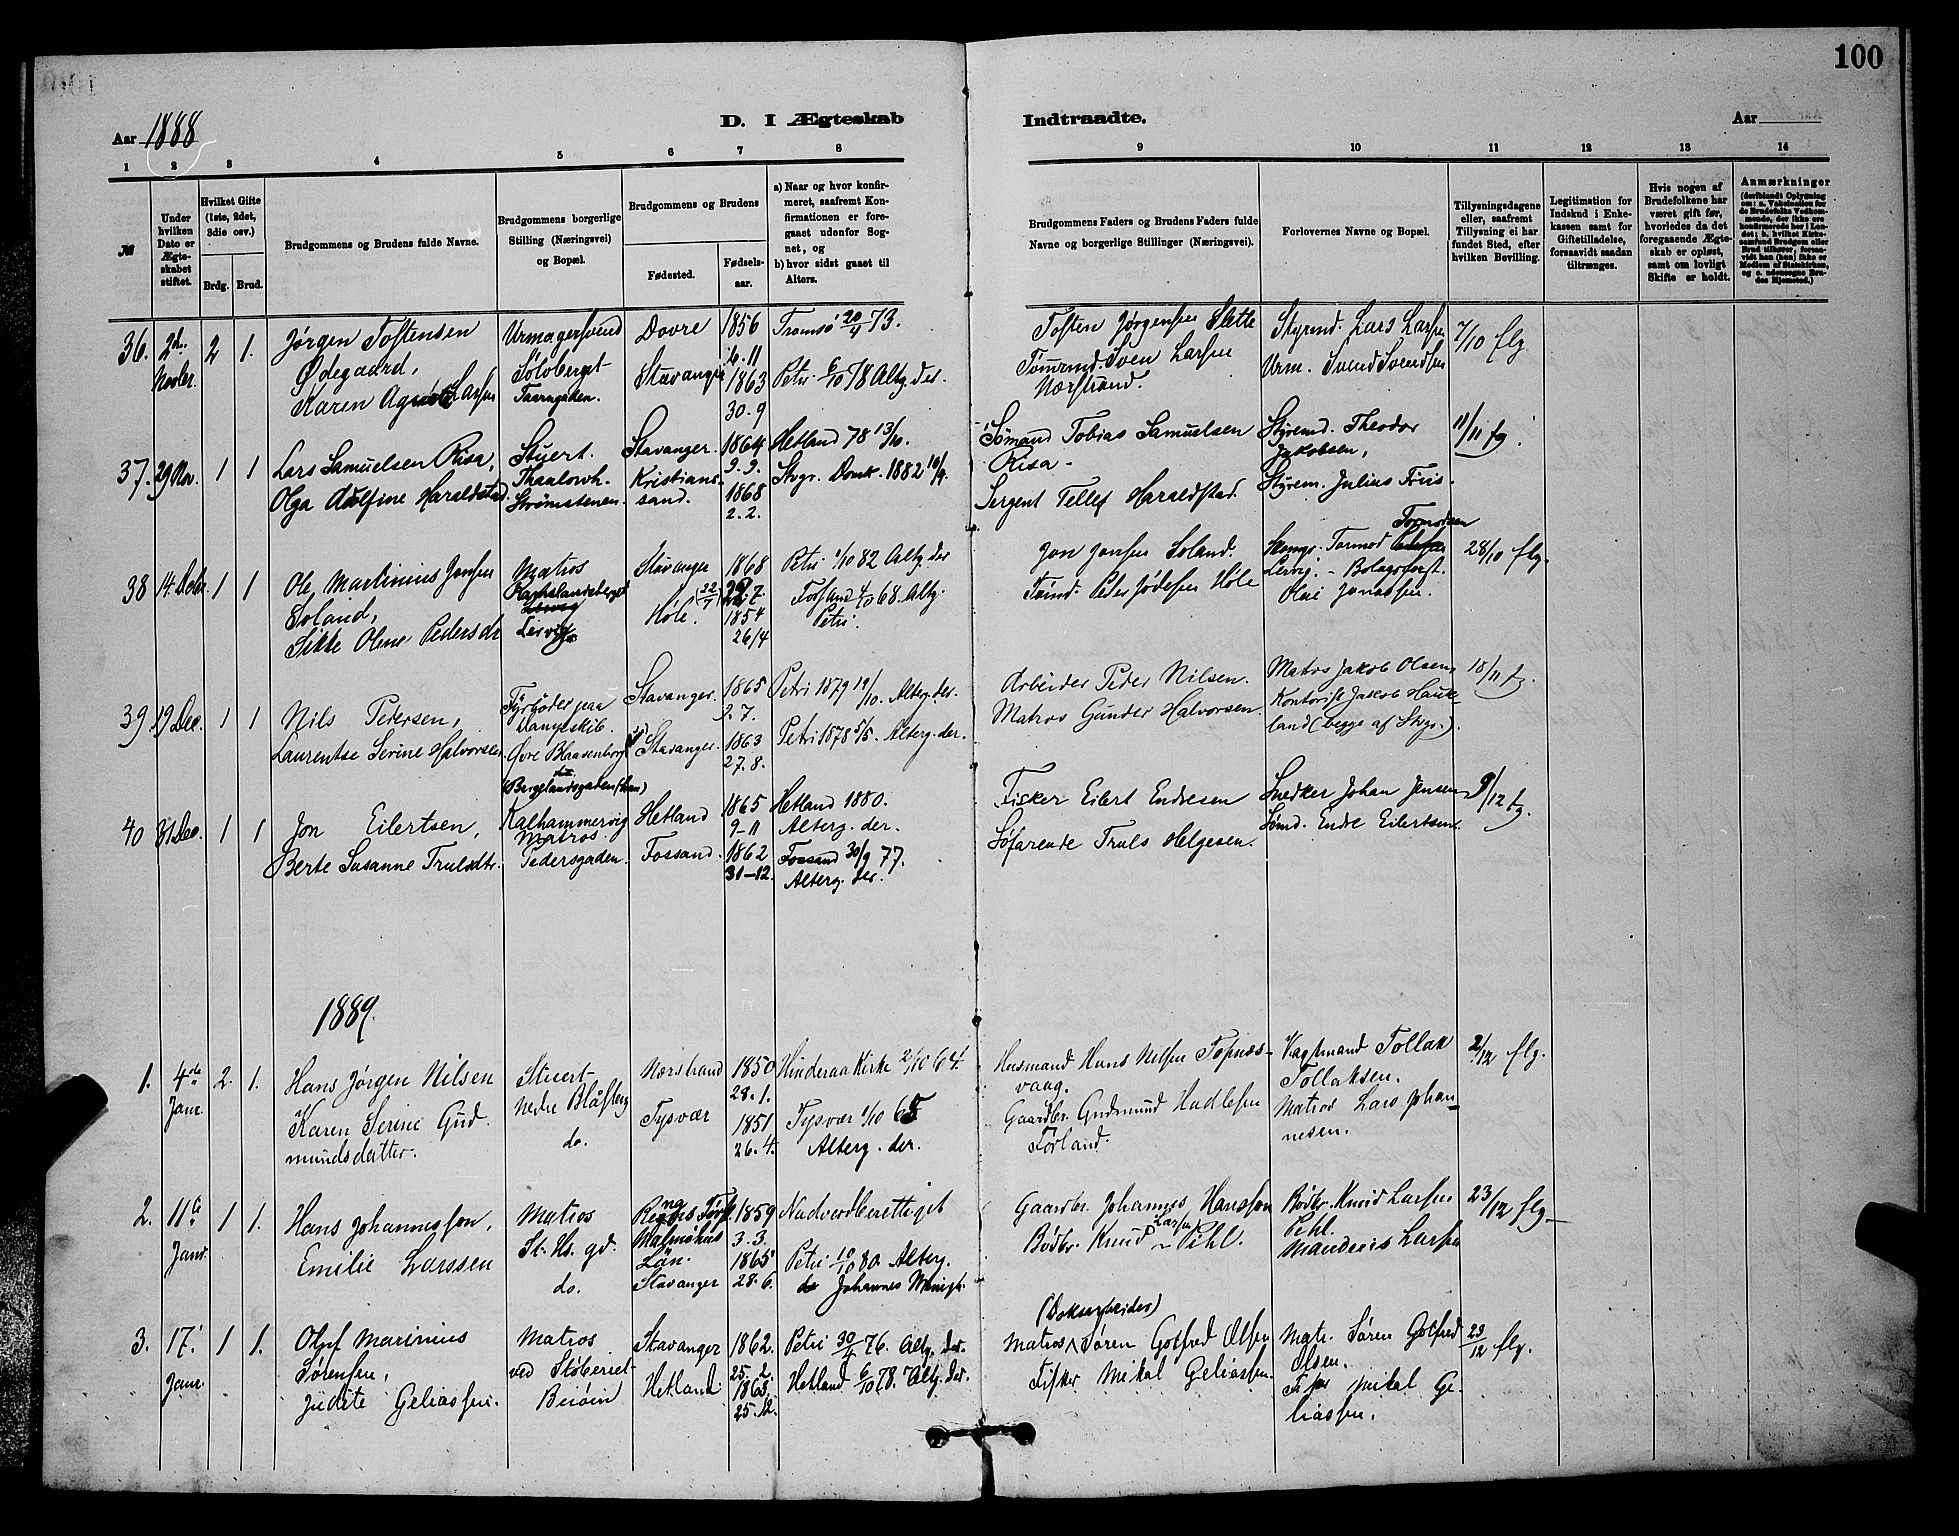 100
Aar 1888
D. I Ægteskab Indtraadte.
Aar
1 2 3 4 5 6 7 8 9 10 11 12 13 14
№
Under hvilken Dato er Ægteskabet stiftet.
Hvilket Gifte (1ste, 2det, 3die osv.)
Brdg. Brud.
Brudgommens og Brudens fulde Navne.
Brudgommens borgerlige Stilling (Næringsvei) og Bopæl.
Brudgommens og Brudens
Fødested.
Fødselsaar.
a) Naar og hvor konfirmeret, saafremt Konfirmationen er foregaaet udenfor Sognet, og
b) hvor sidst gaaet til Alters.
Brudgommens Faders og Brudens Faders fulde Navne og borgerlige Stillinger (Næringsvei).
Forlovernes Navne og Bopæl.
Tillysningsdagene eller, saafremt Tillysning ei har fundet Sted, efter hvilken Bevilling.
Legitimation for Indskud i Enkekassen samt for Giftetilladelse, forsaavidt saadan tiltrænges.
Hvis nogen af Brudefolkene har været gift før, hvorledes da det foregaaende Ægteskab er opløst, samt om lovligt Skifte er holdt.
Anmærkninger
36. 2den Novbr. 2 1.
Jørgen Toftensen
Ødegaard,
Karen Larsen
Urmagersvend
Sølvberget-
Taarngaden.
Dovre
Stavanger
1856
6.11
1863
30.9
Tromsø 20/4 73.
Petri 6/10 78 Altg. der.
Toften Jørgensen Slette
Tømmd. Sven Larsen
Nærstrand.
Styrmd. Lars Larsen
Urm. Svend Svendsen
7/10 flg
37. 29 Nov. 1 1
Lars Samuelsen Risa,
Olga Adolfine Haraldstad.
Stuert.
Thaulowh.
Strømstenen.
Stavanger.
Kristianssand.
1864
9.9.
1868
2.2.
Hetland 78 13/10.
Stvgr. Domk. 1882
Sømand Tobias Samuelsen
Risa-
Sergent Tellef Haraldstad.
Styrmd. Theodor
Jakobsen,
Styrem. Julius Friis.
11/11 fg.
38 14. Decbr. 1 1
Ole Martinius Jonsen
Soland,
Sikke Oline Pedersdr
Matros
Lervig
Stavanger
Høle.
1868
1854
26/4
Petri 1/10 82 Altg. der
Forsand 4/10 68. Altg.
Petri
Jon Jonsen Soland.
Peder Jødesen Høle
Tormod Tormodsen
Lervig. -
Olai Jonassen.
28/10 flg.
39. 19 Dec. 1 1
Nils Pedersen,
Laurentse Serine Halvorsen.
Fyrbøder paa
Dampskib.
Øvre Blaasenborg
Bergelandsgaden (han)
Stavanger.
Stavanger.
1865
2.7.
1863
27.8.
Petri 1879 19/10. Alterg. der.
Petri 1878 5/5. Alterg. der.
Arbeider Peder Nilsen.
Matros Gunder Halvorsen.
Matros Jakob Olsen,
Kontorist Jakob Haukeland (begge af Stvgr.).
18/11 fg.
40 31 Dec. 1 1
Jon Eilertsen,
Berte Susanne Trulsdtr.
Kalhammervig
Matros.
Pedersgaden.
Hetland
Fossand.
1865
9-11
1862
31-12.
Hetland 1880.
Alterg. der.
Fossand 30/9 77.
Alterg. der.
Fisker Eilert Endresen
Søfarende Truls Helgesen.
Snedker Johan Jensen
Sømd. Endre Eilertsen.
9/12 fg.
1889.
1. 4de Janr. 2. 1.
Hans Jørgen Nilsen
Karen Serine Gudmundsdatter.
Stuert
Nedre Blåsenbg
do.
Nærstrand
Tysvær
1850
28.1.
1851
26.4.
Hinderaa Kirke 2/10 64.
Tysvær 1/10 65
Alterg. der.
Husmand Hans Nilsen Topnesvaag.
Gaardbr. Gudmund Hadlesen
Førland.
Vagtmand Tollak
Tollaksen.
Matros Lars Johannesen.
2/12 flg.
2. 11te Janr. 1 1.
Hans Johannesson,
Emilie Larssen
Matros
St. Hs. gd.
do.
Malmöhus
Län.
Stavanger
1859
3.3.
1865
28.6.
Nadverdberettiget
Petri 10/10 80. Alterg.
Johannes Menigh.
Gaardbr. Johannes Hansson
Bødkr. Knud Larsen Pihl.
Bødkr. Knud Larsen
Pihl.
Mandius Larsen
23/12 flg.
3. 17. Janr. 1 1.
Oluf Marinius
Sørensen,
Judite Geliassen.
Matros
ved Støberiet
Beiøien
Stavanger
Hetland
1862.
25.2.
1863.
25.12.
Petri 30/4 76. Altg. der.
Hetland 6/10 78. Altg. der.
(Dokarbeider)
Matros Søren Gotfred Olsen
Fisker Mikal Geliassen.
Matr. Søren Gotfred
Olsen.
Fisker Mikal Geliassen.
23/12 flg.